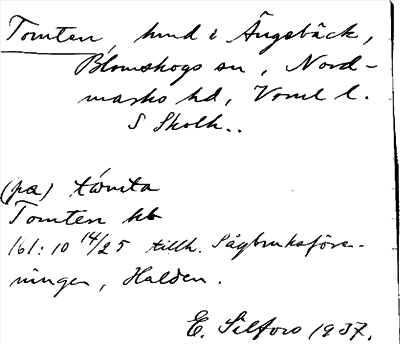 Tomten, hmd i Ängebäck,
Blomskogs sn, Nord-
marks hd, Vrml l.
S Skolh..
(pa) tòmta
Tomten hb
161:10 14/25 tillh. Sågbruksföre-
ningen, Halden.
E. Silfors 1937.